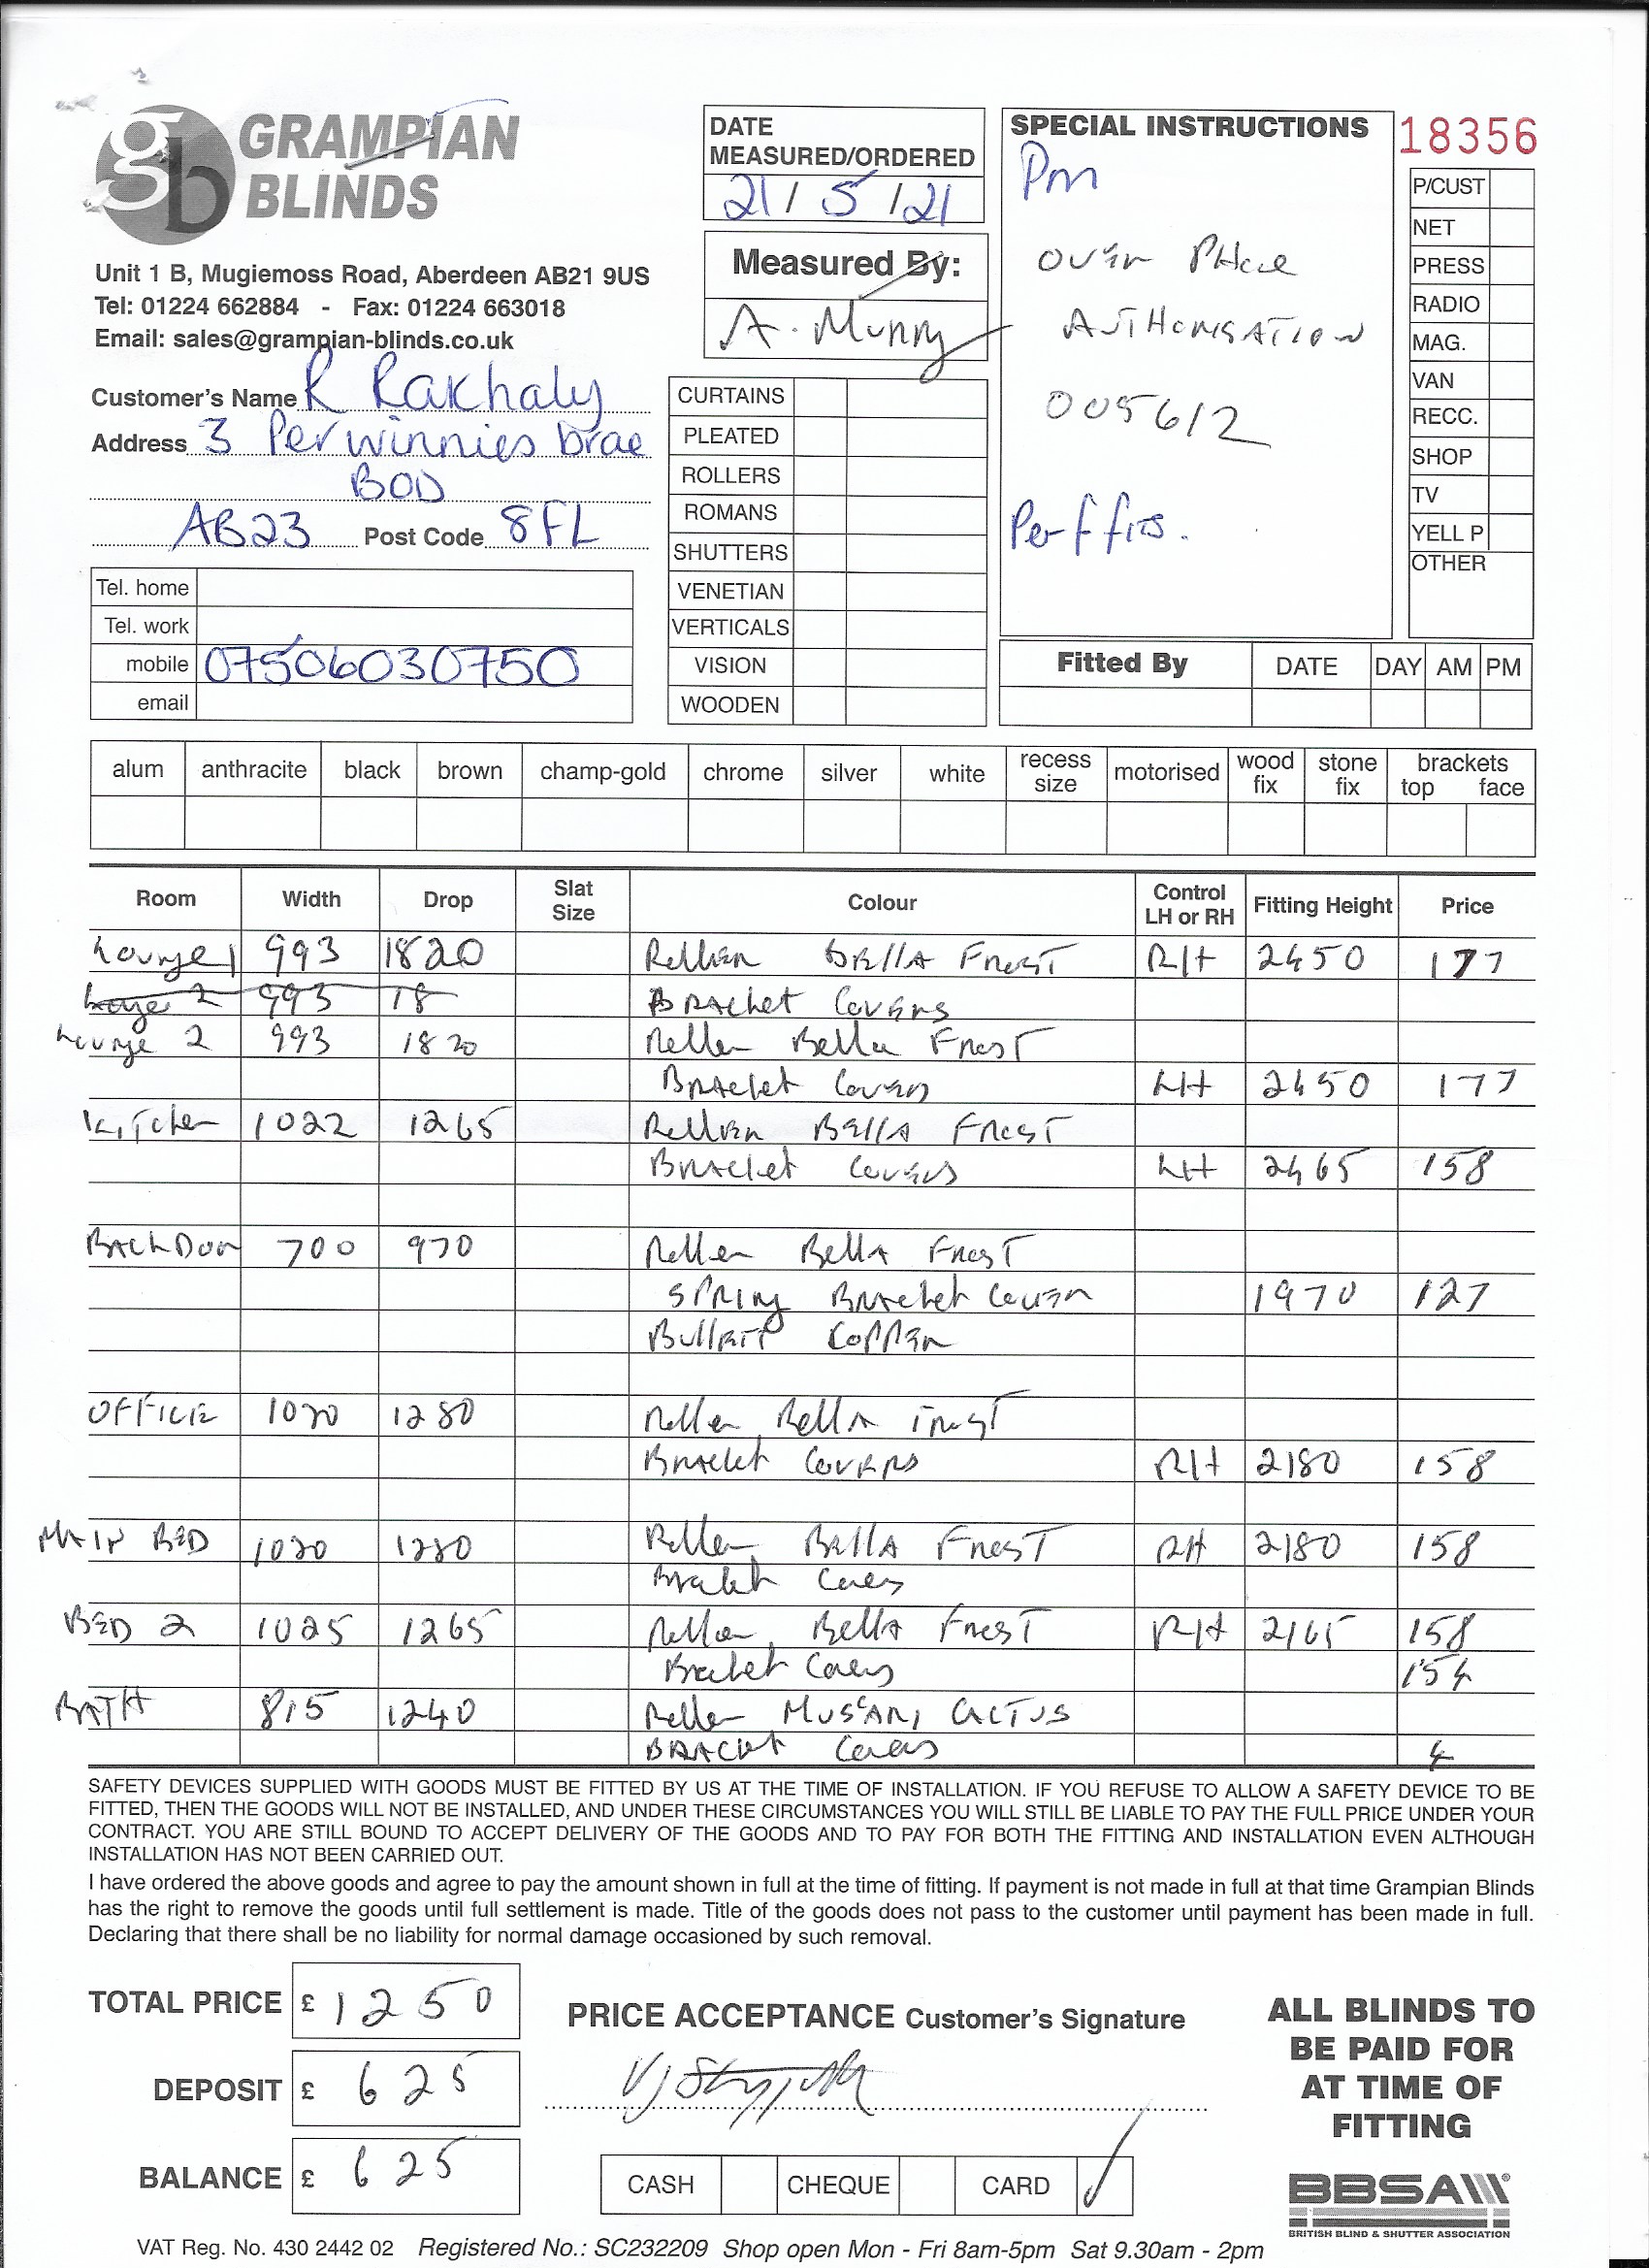 gb GRAMPIAN
BLINDS
Unit 1 B, Mugiemoss Road, Aberdeen AB21 9US
Tel: 01224 662884 - Fax: 01224 663018
Email: sales@grampian-blinds.co.uk
Customer's Name R Rakhaly
Address 3 Perwinnies brae
BOD
AB23 Post Code 8FL
Tel. home
Tel. work
mobile 07506030750
email
DATE
MEASURED/ORDERED
21 / 5 / 21
Measured By:
A. Murray
CURTAINS
PLEATED
ROLLERS
ROMANS
SHUTTERS
VENETIAN
VERTICALS
VISION
WOODEN
SPECIAL INSTRUCTIONS
Pm
OVER PHONE
AUTHORISATION
005612
Perf fits.
18356
P/CUST
NET
PRESS
RADIO
MAG.
VAN
RECC.
SHOP
TV
YELL P
OTHER
Fitted By DATE DAY AM PM
alum anthracite black brown champ-gold chrome silver white recess size motorised wood fix stone fix brackets top face
Room Width Drop Slat Size Colour Control LH or RH Fitting Height Price
Lounge 1 993 1820 Roller BELLA FROST R/H 2450 177
Lounge 2 993 18 BRACKET COVERS
Lounge 2 993 1820 Roller Bella FROST
BRACKET Covers LH 2450 177
KITCHEN 1022 1265 Roller BELLA FROST
BRACKET COVERS LH 2465 158
BACK DOOR 700 970 Roller BELLA FROST
SPRING BRACKET COVER 1970 127
BULLET COPPER
OFFICE 1020 1280 Roller BELLA FROST
BRACKET COVERS R/H 2180 158
MAIN BED 1020 1280 Roller BELLA FROST RH 2180 158
Bracket Covers
BED 2 1025 1265 Roller BELLA FROST R/H 2165 158
Bracket Covers 154
BATH 815 1240 Roller MUSCARI CACTUS
BRACKET Covers 4
SAFETY DEVICES SUPPLIED WITH GOODS MUST BE FITTED BY US AT THE TIME OF INSTALLATION. IF YOU REFUSE TO ALLOW A SAFETY DEVICE TO BE
FITTED, THEN THE GOODS WILL NOT BE INSTALLED, AND UNDER THESE CIRCUMSTANCES YOU WILL STILL BE LIABLE TO PAY THE FULL PRICE UNDER YOUR
CONTRACT. YOU ARE STILL BOUND TO ACCEPT DELIVERY OF THE GOODS AND TO PAY FOR BOTH THE FITTING AND INSTALLATION EVEN ALTHOUGH
INSTALLATION HAS NOT BEEN CARRIED OUT.
I have ordered the above goods and agree to pay the amount shown in full at the time of fitting. If payment is not made in full at that time Grampian Blinds
has the right to remove the goods until full settlement is made. Title of the goods does not pass to the customer until payment has been made in full.
Declaring that there shall be no liability for normal damage occasioned by such removal.
TOTAL PRICE £ 1250
DEPOSIT £ 625
BALANCE £ 625
PRICE ACCEPTANCE Customer's Signature
CASH CHEQUE CARD ✓
ALL BLINDS TO
BE PAID FOR
AT TIME OF
FITTING
BBSA
BRITISH BLIND & SHUTTER ASSOCIATION
VAT Reg. No. 430 2442 02 Registered No.: SC232209 Shop open Mon - Fri 8am-5pm Sat 9.30am - 2pm